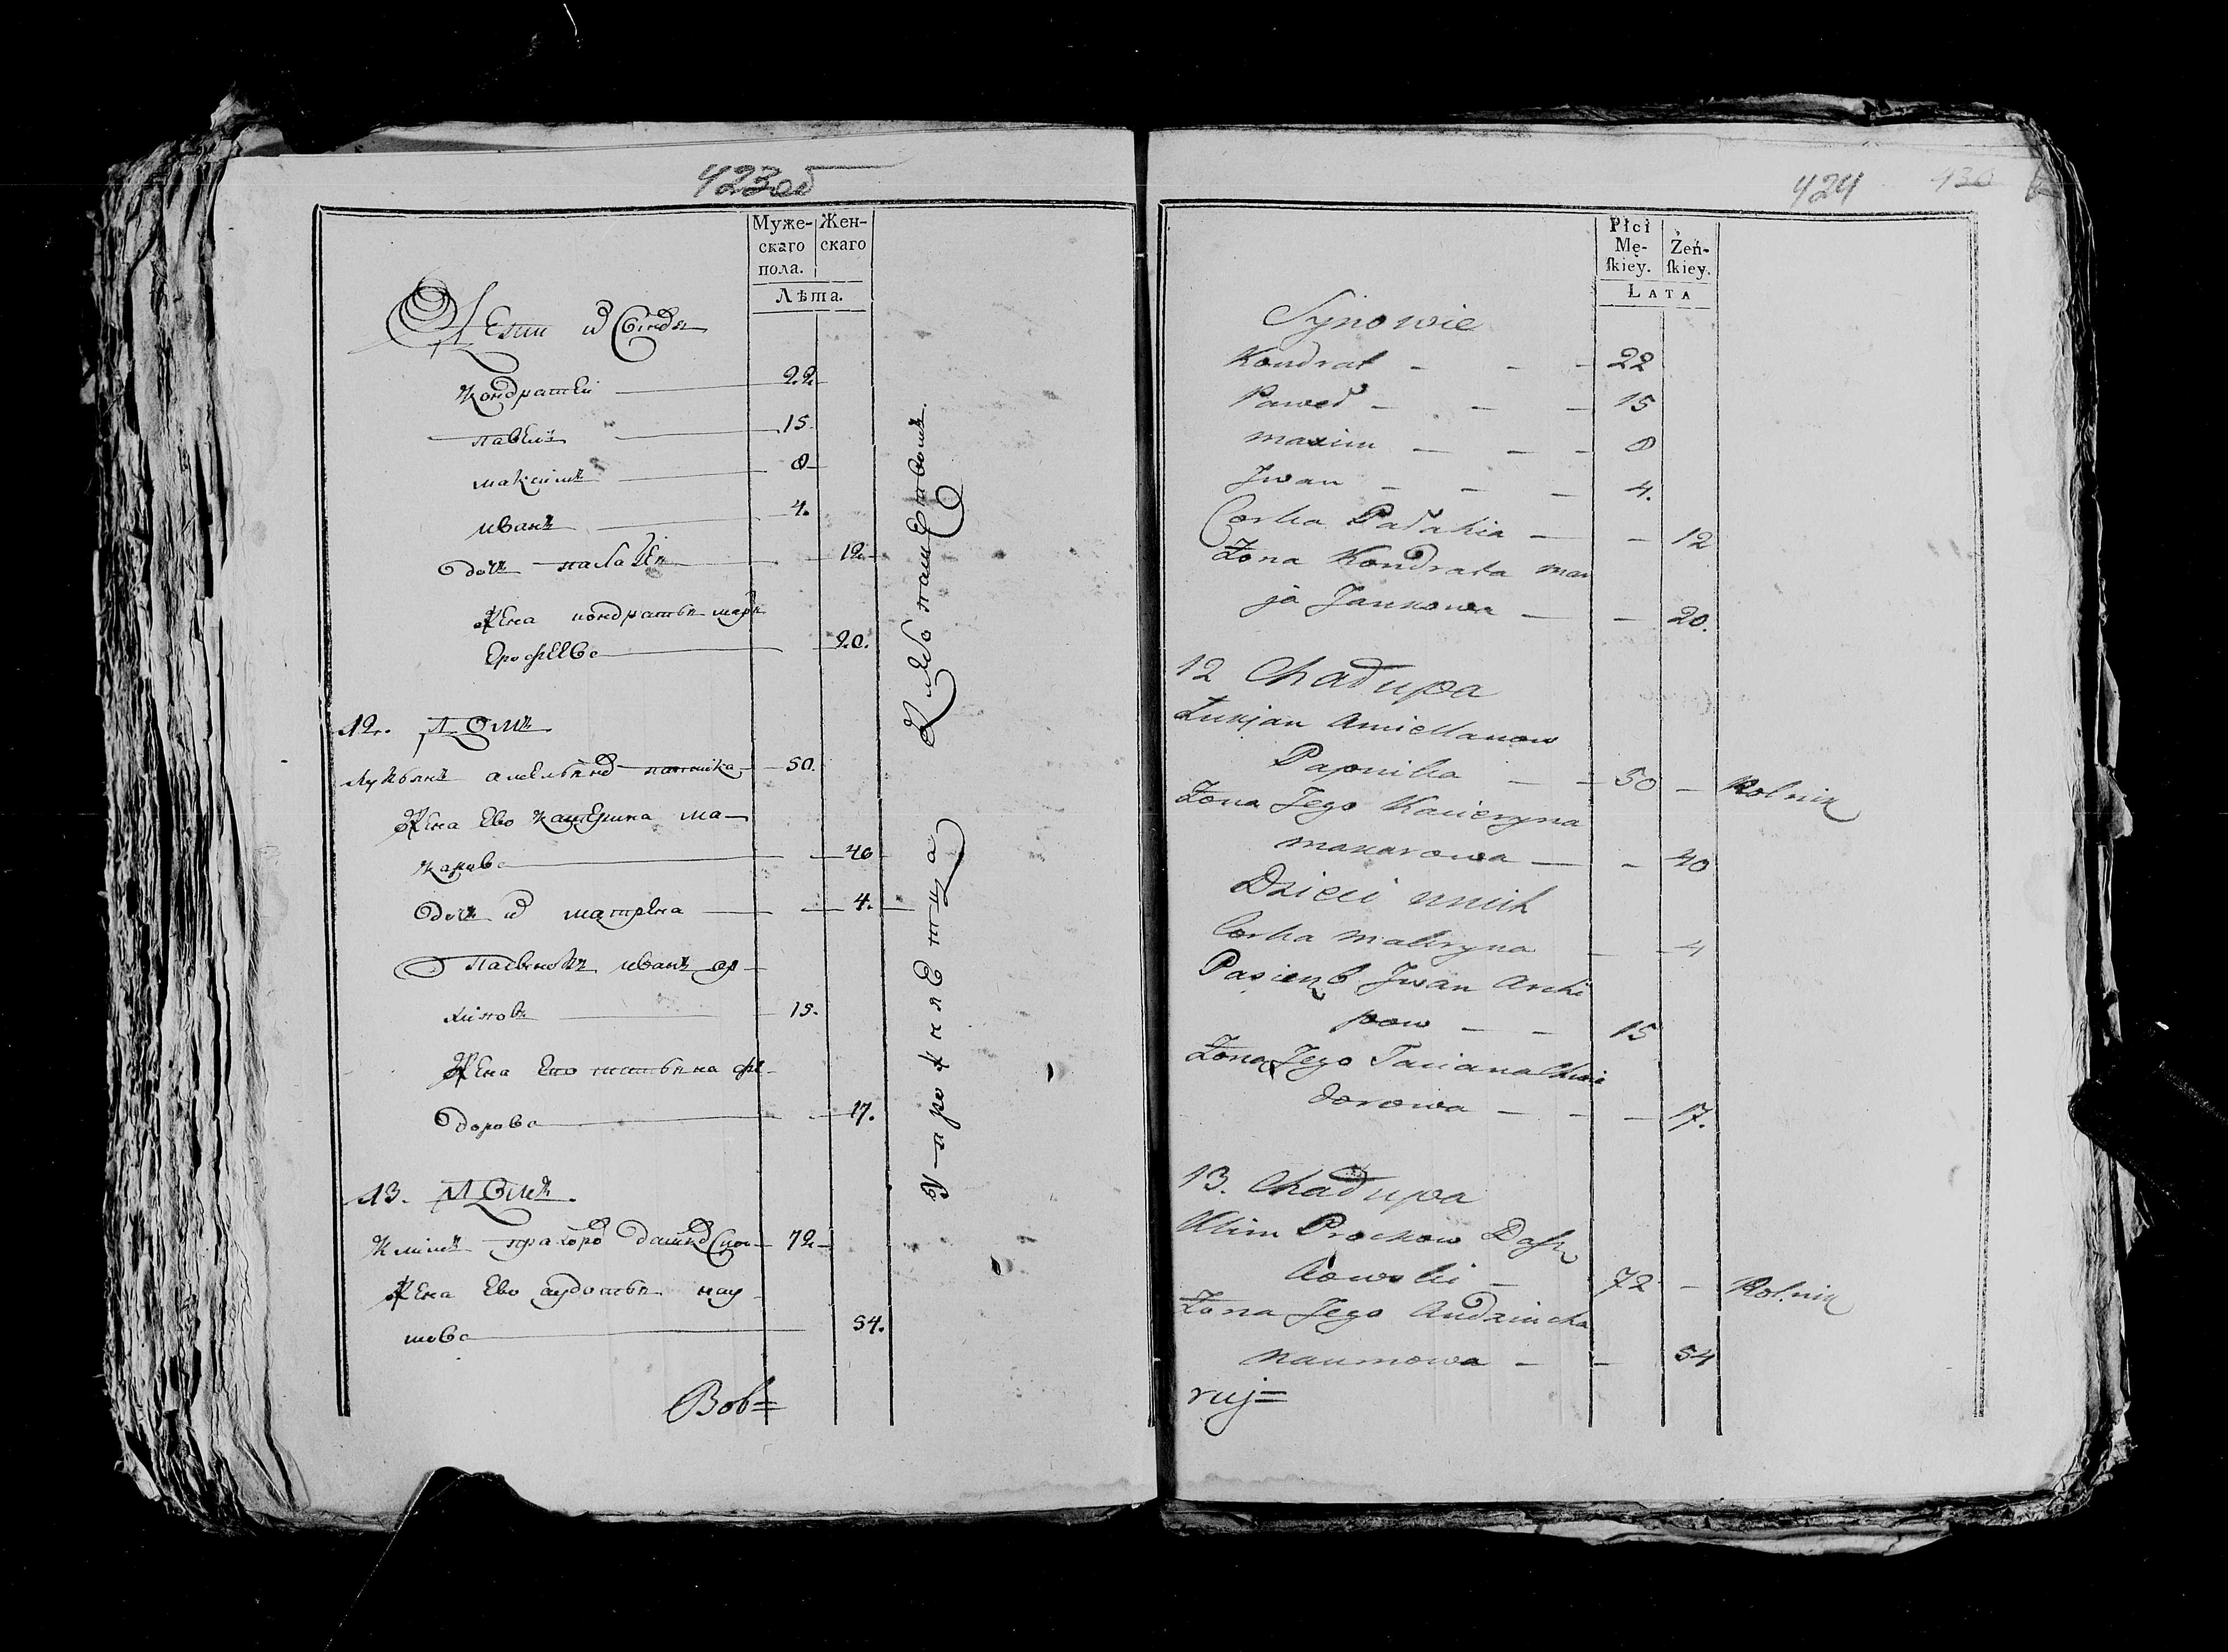 423об
Муже-
скаго
пола.
Жен-
скаго
Лѣта.
Дети и Сынов
Кондратей 22
павелъ 15.
максимъ 8
иванъ 4.
дочь палагея 12
Жена кондратья марья
Ерофеева 20.
12. Домъ
Лукьянъ амельянов папшика 50.
Жена Ево Катерина ма-
карова 40
дочь и матрена 4.
пасынокъ иванъ ар-
хиповъ 15.
Жена Ево татьяна фе-
дорова 17.
13. Домъ
Климъ прахоров 72
Жена Ево аудотья нау-
мова 54.
Воб=
Упрожняетца Хлебопашеством.
424 430
Płci
Mę-
ſkiey.
Żeń-
ſkiey.
LATA
Synowie
Kondrat - - - 22
Paweł - - - 15
maxim - - - 8
Jwan - - - 4.
Corka Pałahia - - 12
Zona Kondrata mar
ja Jauxowa - - 20.
12 Chałupa
Łukjan Amiellanow
Papuika - - 50 - Rolnik
Zona Jego Kacieryna
makarowa - - 40
Dzieci unich
Corka matryna - - 4
Pasienb Jwan Archi
pow - - 15
Zona Jego Taciana Chwie
dorowa - - - 17.
13. Chałupa
Klim Prochow Dasz
kowski - 72 - Rolnik
Zona Jego Audziucha
naumowa - - 54
ruj=